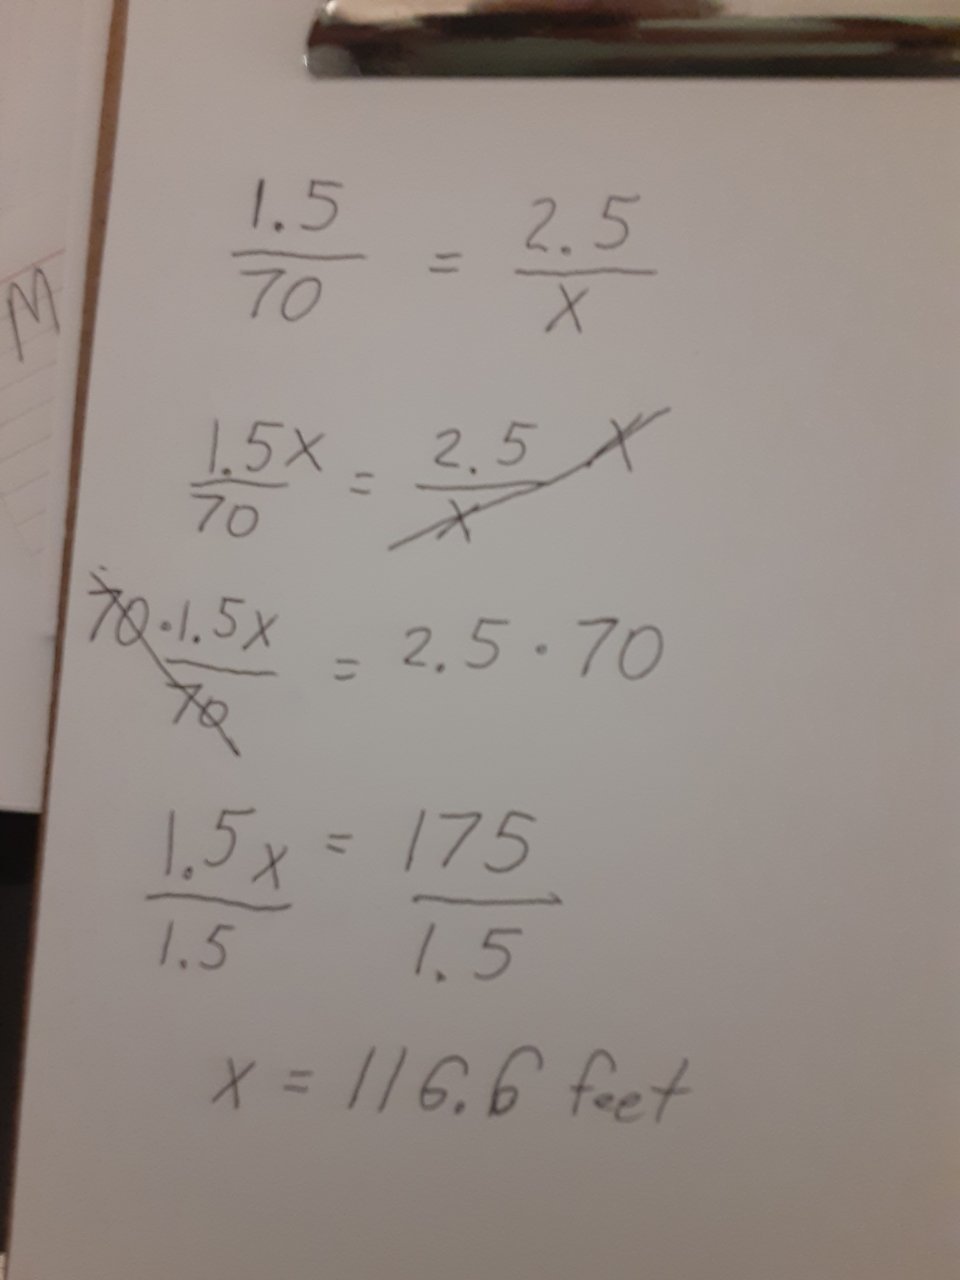 M
1.5/70 = 2.5/x
1.5x/70 = 2.5/x x
70·1.5x/70 = 2.5·70
1.5x/1.5 = 175/1.5
x = 116.6 feet